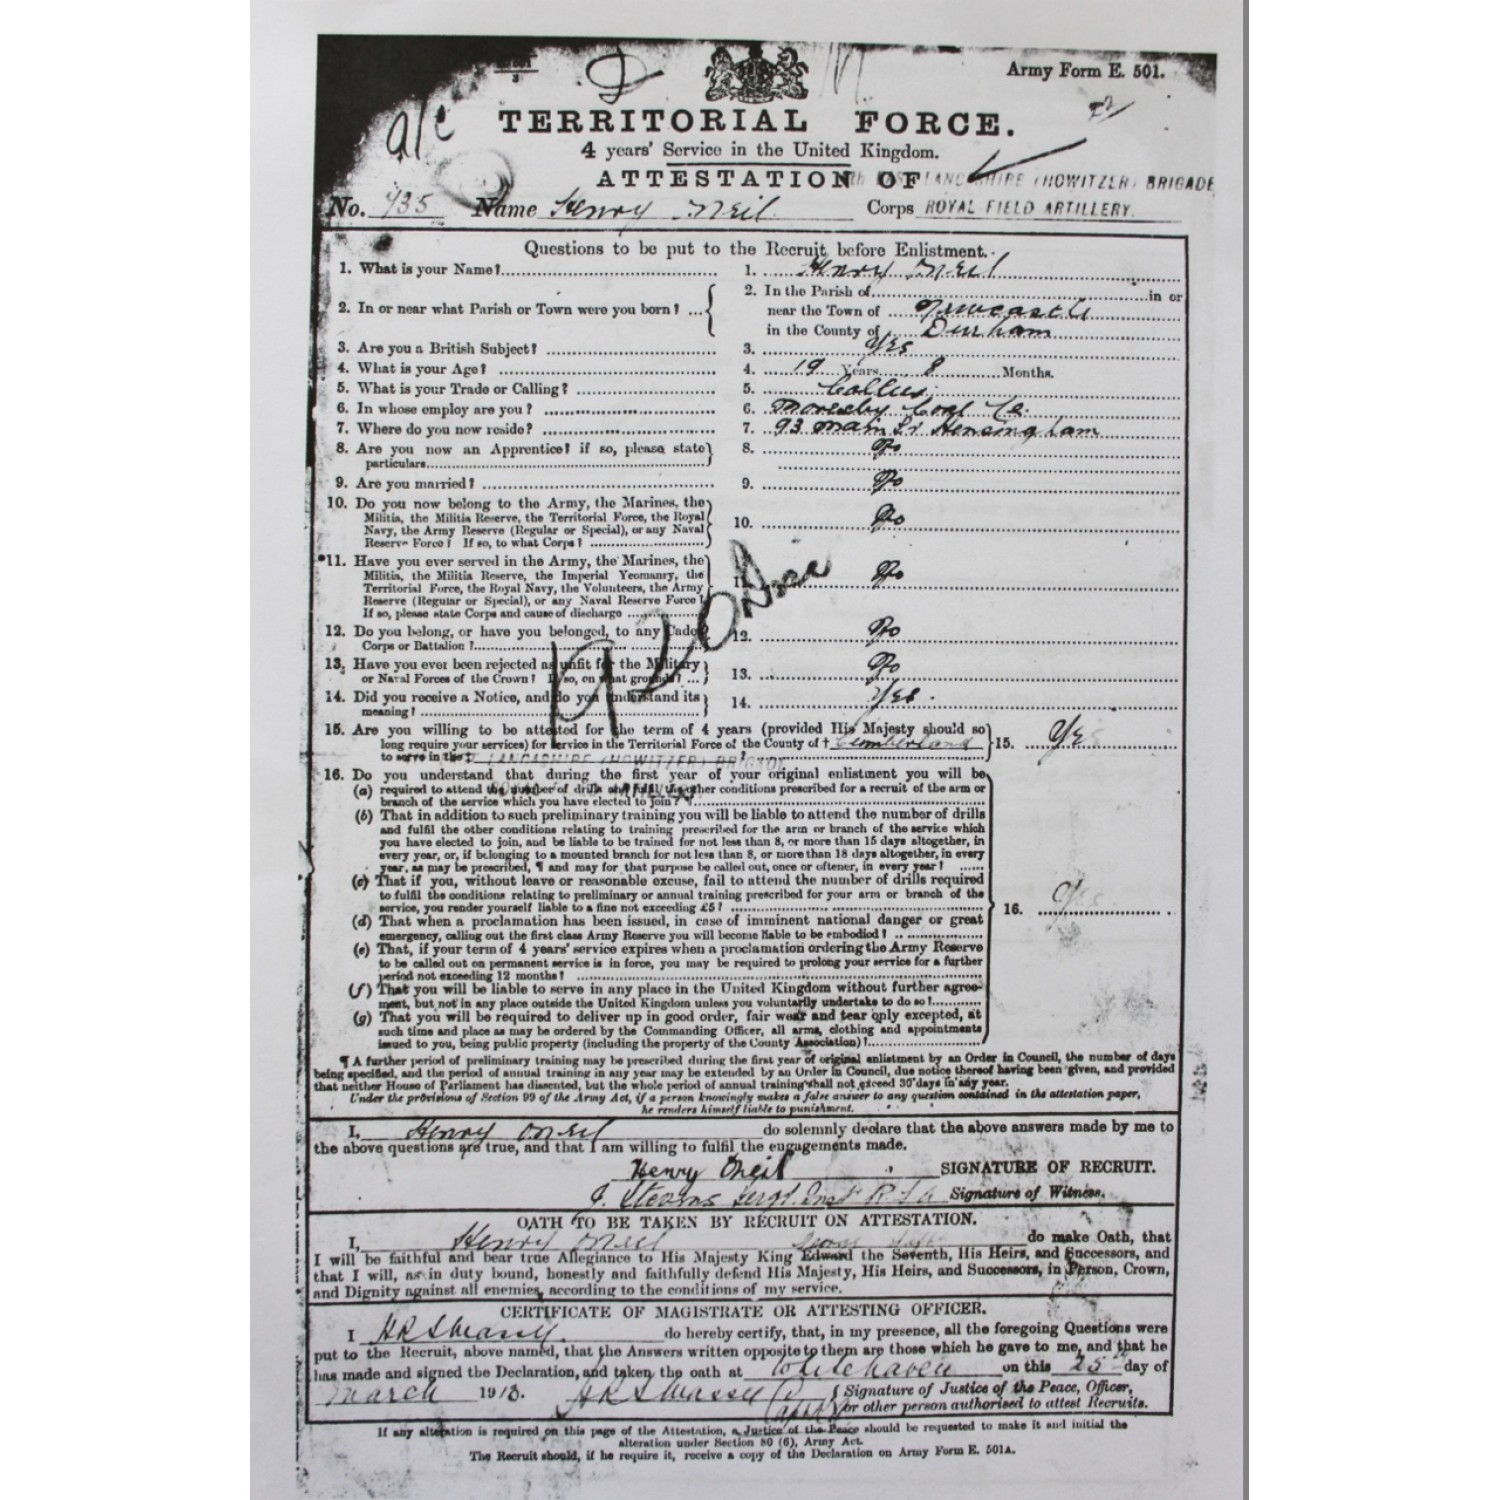 Army Form E. 501.
a/c
TERRITORIAL FORCE.
4 years' Service in the United Kingdom.
ATTESTATION OF LANCASHIRE (HOWITZER) BRIGADE
No. 435 Name Henry Neil Corps ROYAL FIELD ARTILLERY.
Questions to be put to the Recruit before Enlistment.
1. What is your Name? 1. Henry Neil
2. In or near what Parish or Town were you born? 2. In the Parish of in or
near the Town of Newcastle
in the County of Durham
3. Are you a British Subject? 3. Yes
4. What is your Age? 4. 19 Years 8 Months.
5. What is your Trade or Calling? 5.
6. In whose employ are you? 6. Moresby Coal Co.
7. Where do you now reside? 7. 93 Main St Hensingham
8. Are you now an Apprentice? if so, please state 8. No
particulars
9. Are you married? 9. No
10. Do you now belong to the Army, the Marines, the
Militia, the Militia Reserve, the Territorial Force, the Royal
Navy, the Army Reserve (Regular or Special), or any Naval
Reserve Force? If so, to what Corps? 10. No
11. Have you ever served in the Army, the Marines, the
Militia, the Militia Reserve, the Imperial Yeomanry, the
Territorial Force, the Royal Navy, the Volunteers, the Army
Reserve (Regular or Special), or any Naval Reserve Force?
If so, please state Corps and cause of discharge 11. No
1920
12. Do you belong, or have you belonged, to any Cadet
Corps or Battalion? 12. No
13. Have you ever been rejected as unfit for the Military
or Naval Forces of the Crown? If so, on what grounds? 13. No
14. Did you receive a Notice, and do you understand its
meaning? 14. Yes.
15. Are you willing to be attested for the term of 4 years (provided His Majesty should so
long require your services) for service in the Territorial Force of the County of † Cumberland 15. Yes
to serve in the ‡ LANCASHIRE (HOWITZER) BRIGADE ?
16. Do you understand that during the first year of your original enlistment you will be
(a) required to attend the number of drills and fulfil the other conditions prescribed for a recruit of the arm or
branch of the service which you have elected to join?
(b) That in addition to such preliminary training you will be liable to attend the number of drills
and fulfil the other conditions relating to training prescribed for the arm or branch of the service which
you have elected to join, and be liable to be trained for not less than 8, or more than 15 days altogether, in
every year, or, if belonging to a mounted branch for not less than 8, or more than 18 days altogether, in every
year, as may be prescribed, ¶ and may for that purpose be called out, once or oftener, in every year?
(c) That if you, without leave or reasonable excuse, fail to attend the number of drills required
to fulfil the conditions relating to preliminary or annual training prescribed for your arm or branch of the
service, you render yourself liable to a fine not exceeding £5? 16. Yes
(d) That when a proclamation has been issued, in case of imminent national danger or great
emergency, calling out the first class Army Reserve you will become liable to be embodied?
(e) That, if your term of 4 years' service expires when a proclamation ordering the Army Reserve
to be called out on permanent service is in force, you may be required to prolong your service for a further
period not exceeding 12 months?
(f) That you will be liable to serve in any place in the United Kingdom without further agree-
ment, but not in any place outside the United Kingdom unless you voluntarily undertake to do so?
(g) That you will be required to deliver up in good order, fair wear and tear only excepted, at
such time and place as may be ordered by the Commanding Officer, all arms, clothing and appointments
issued to you, being public property (including the property of the County Association)?
¶ A further period of preliminary training may be prescribed during the first year of original enlistment by an Order in Council, the number of days
being specified, and the period of annual training in any year may be extended by an Order in Council, due notice thereof having been given, and provided
that neither House of Parliament has dissented, but the whole period of annual training shall not exceed 30 days in any year.
Under the provisions of Section 99 of the Army Act, if a person knowingly makes a false answer to any question contained in the attestation paper,
he renders himself liable to punishment.
I, Henry O'Neil do solemnly declare that the above answers made by me to
the above questions are true, and that I am willing to fulfil the engagements made.
Henry Oneil SIGNATURE OF RECRUIT.
J. Stevens Sergt. Inst R.F.A Signature of Witness.
OATH TO BE TAKEN BY RECRUIT ON ATTESTATION.
I, Henry O'Neil do make Oath, that
I will be faithful and bear true Allegiance to His Majesty King Edward the Seventh, His Heirs, and Successors, and
that I will, as in duty bound, honestly and faithfully defend His Majesty, His Heirs, and Successors, in Person, Crown,
and Dignity against all enemies, according to the conditions of my service.
CERTIFICATE OF MAGISTRATE OR ATTESTING OFFICER.
I do hereby certify, that, in my presence, all the foregoing Questions were
put to the Recruit, above named, that the Answers written opposite to them are those which he gave to me, and that he
has made and signed the Declaration, and taken the oath at Whitehaven on this 25th day of
March 1913. Signature of Justice of the Peace, Officer,
or other person authorised to attest Recruits.
If any alteration is required on this page of the Attestation, a Justice of the Peace should be requested to make it and initial the
alteration under Section 80 (6), Army Act.
The Recruit should, if he require it, receive a copy of the Declaration on Army Form E. 501A.